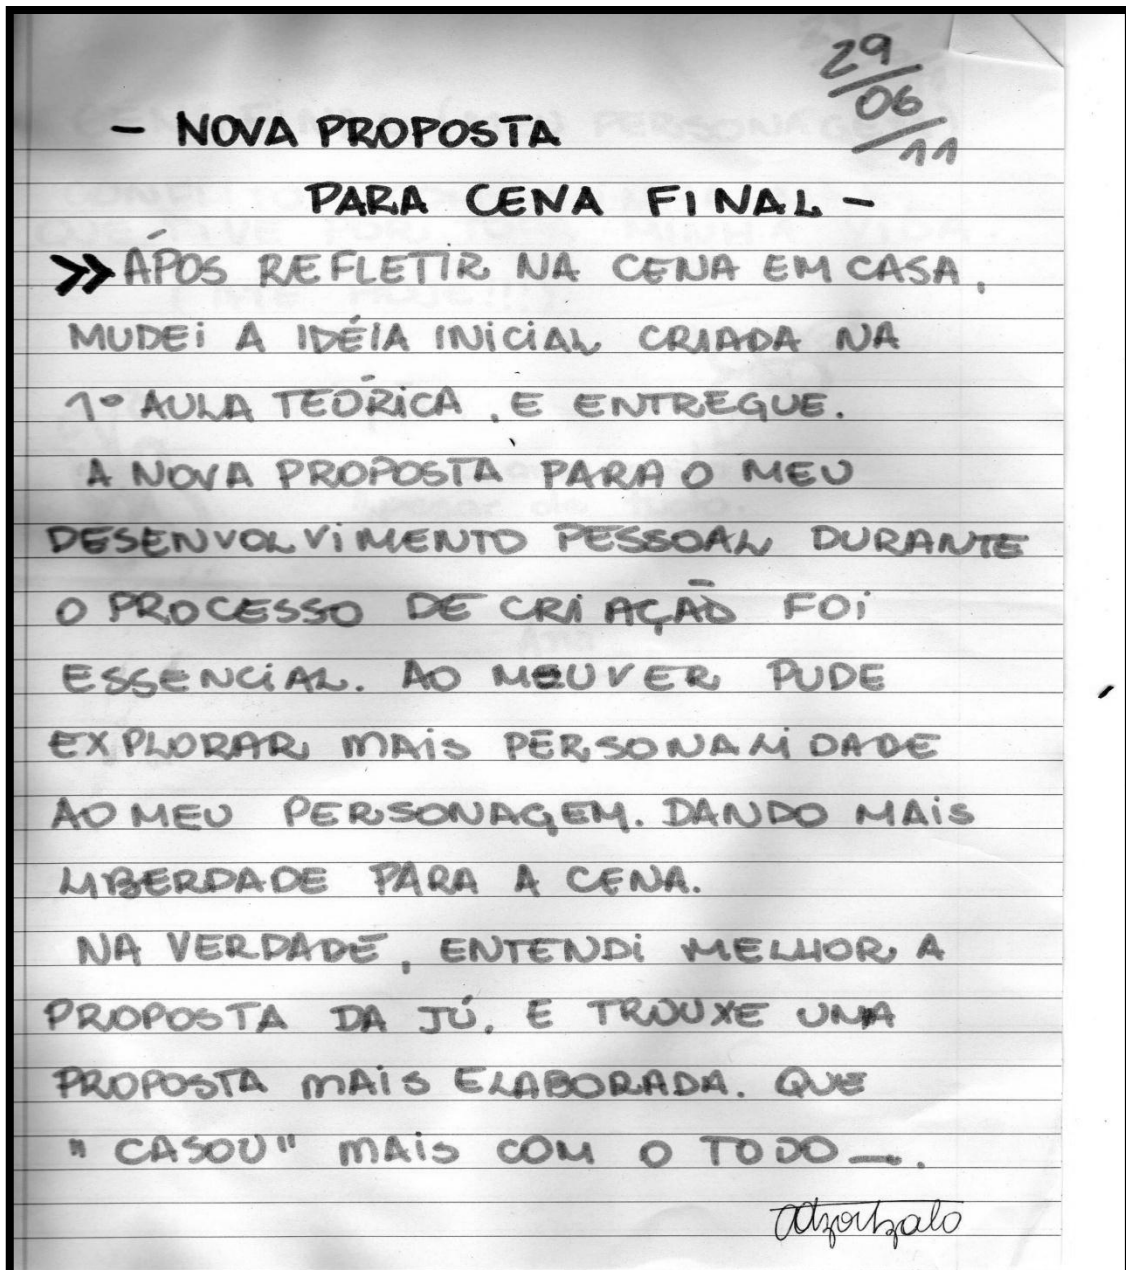 29/06/11
- NOVA PROPOSTA
PARA CENA FINAL -
>> APÓS REFLETIR NA CENA EM CASA,
MUDEI A IDÉIA INICIAL CRIADA NA
1º AULA TEÓRICA, E ENTREGUE.
A NOVA PROPOSTA PARA O MEU
DESENVOLVIMENTO PESSOAL DURANTE
O PROCESSO DE CRIAÇÃO FOI
ESSENCIAL. AO MEU VER PUDE
EXPLORAR MAIS PERSONALIDADE
AO MEU PERSONAGEM. DANDO MAIS
LIBERDADE PARA A CENA.
NA VERDADE, ENTENDI MELHOR A
PROPOSTA DA JÚ. E TROUXE UMA
PROPOSTA MAIS ELABORADA. QUE
"CASOU" MAIS COM O TODO —.